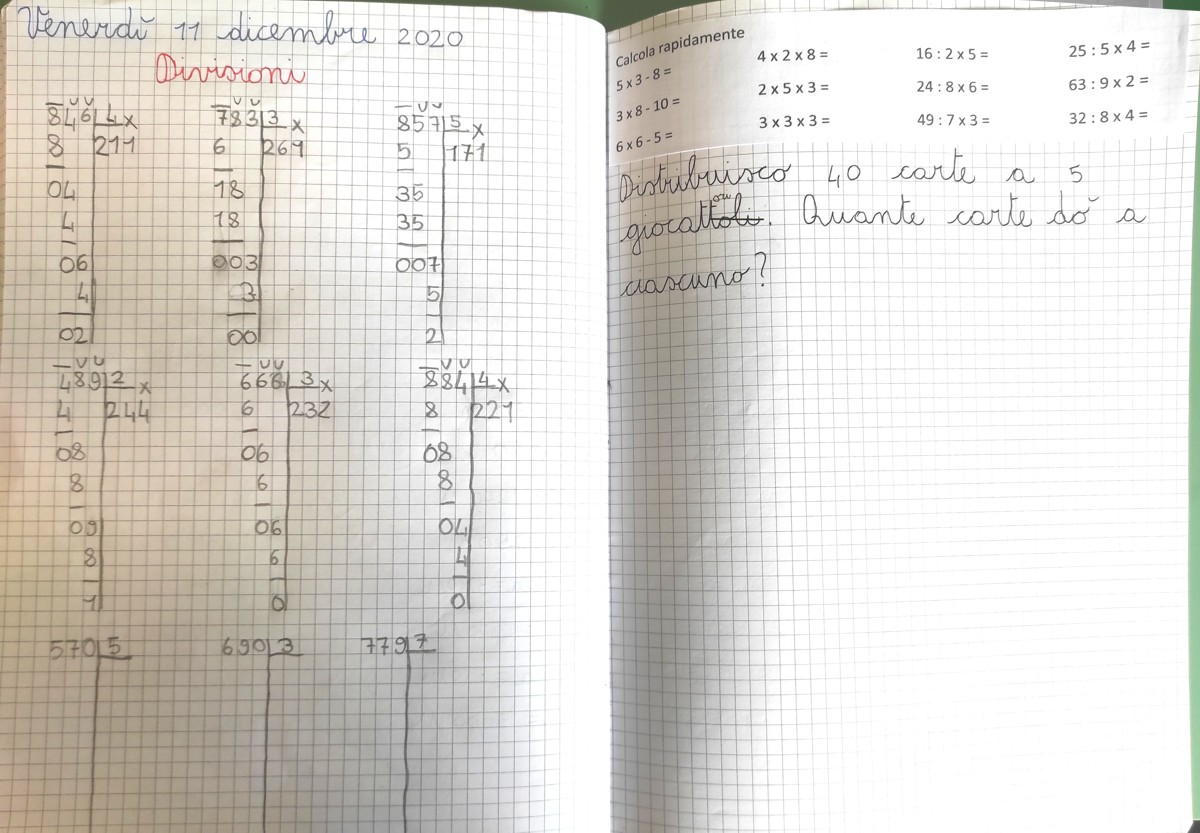 Venerdì 11 dicembre 2020
Divisioni
846 4 x
8 211
04
4
06
4
02
783 3 x
6 261
18
18
003
3
00
857 5 x
5 171
35
35
007
5
2
489 2 x
4 244
08
8
09
8
1
666 3 x
6 232
06
6
06
6
0
884 4 x
8 221
08
8
04
4
0
570 5
690 3
779 7
Calcola rapidamente
5 x 3 - 8 =
3 x 8 - 10 =
6 x 6 - 5 =
4 x 2 x 8 =
2 x 5 x 3 =
3 x 3 x 3 =
16 : 2 x 5 =
24 : 8 x 6 =
49 : 7 x 3 =
25 : 5 x 4 =
63 : 9 x 2 =
32 : 8 x 4 =
Distribuisco 40 carte a 5
giocattoli. Quante carte dò a
ciascuno?